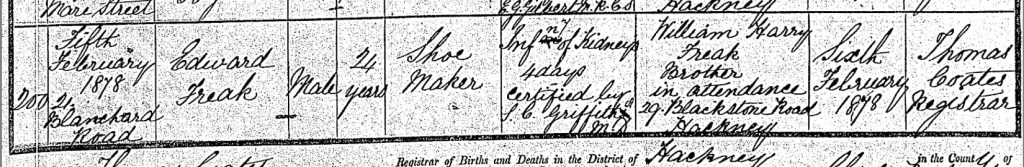 Mare Street
E.G. Gilbert M.R.C.S
Hackney
200
Fifth
February
1878
21
Blanchard
Road
Edward
Freak
Male
24
years
Shoe
Maker
Infn of Kidneys
4 days
Certified by
S. C. Griffith
M D
William Harry
Freak
Brother
in attendance
29 Blackstone Road
Hackney
Sixth
February
1878
Thomas
Coates
Registrar
Registrar of Births and Deaths in the District of
Hackney
in the County of